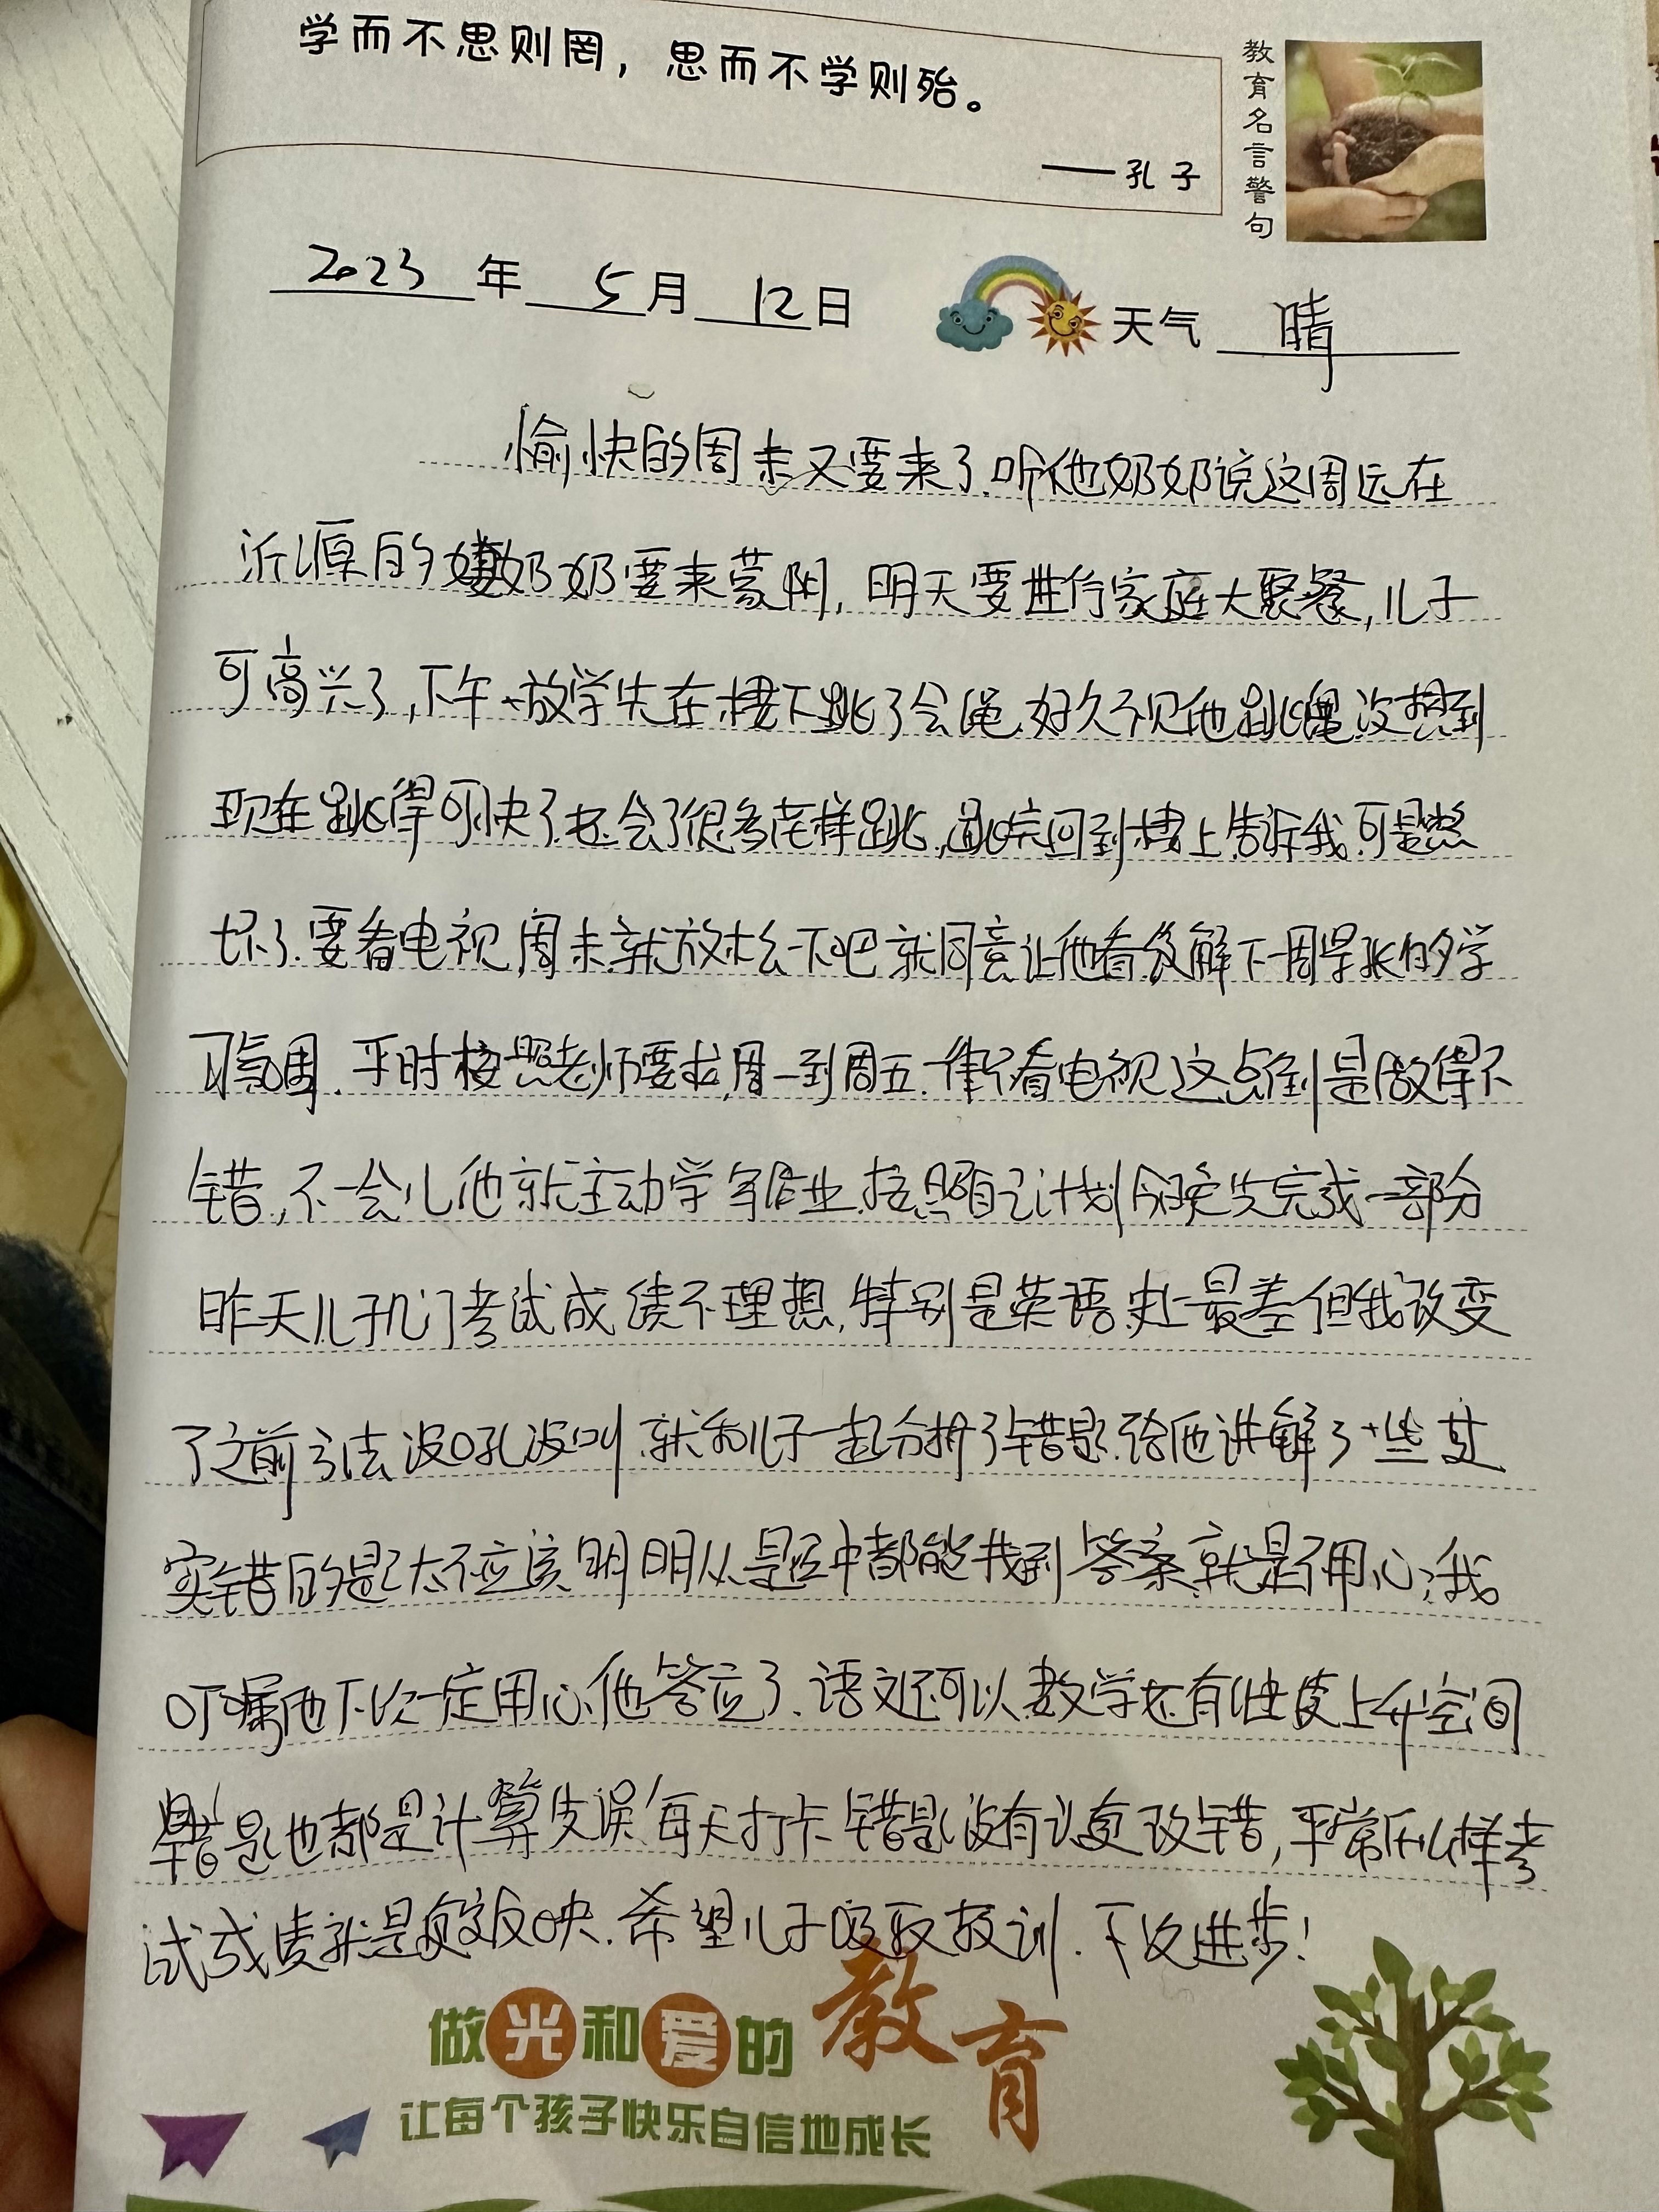 学而不思则罔，思而不学则殆。
——孔子
教育名言警句
2023年5月12日 天气 晴
愉快的周末又要来了.听他奶奶说这周远在
沂源的嫩奶奶要来蒙阴，明天要进行家庭大聚餐，儿子
可高兴了，下午一放学先在楼下跳了会绳.好久不见他跳绳.没想到
现在跳得可快了.还会了很多花样跳，跳完回到楼上告诉我.可是憋
坏了.要看电视，周末就放松一下吧 就同意让他看缓解下一周紧张的学
习氛围.平时按照老师要求，周一到周五一律不看电视 这点倒是做得不
错，不一会儿他就主动学写作业.按照自己计划今晚先完成一部分
昨天儿子几门考试成绩不理想，特别是英语.史上最差 但我改变
了之前方法 没吼没叫.就和儿子一起分析了错题.给他讲解了一些 其
实错的题太不应该 明明从题中都能找到答案，就是不用心，我
叮嘱他下次一定用心，他答应了.语文还可以 数学还有进度上升空间
错题也都是计算失误 每天打卡错题没有认真改错，平常什么样考
试成绩就是反映.希望儿子吸取教训.下次进步！
做光和爱的教育
让每个孩子快乐自信地成长